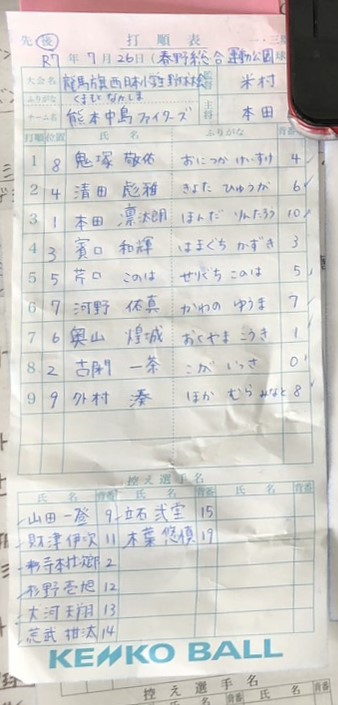 先 後 打順表 一・三塁
R7年7月26日(春野総合運動公園球
大会名 龍馬旗西日本小学生野球大会 監督 米村
ふりがな くまもとなかしま
チーム名 熊本中島ファイターズ 主将 本田
打順 位置 氏名 ふりがな 背番
1 8 鬼塚 敬佑 おにつか けいすけ 4
2 4 清田 彪雅 きよた ひゅうが 6
3 1 本田 凛太朗 ほんだ りんたろう 10
4 3 濱口 和輝 はまぐち かずき 3
5 5 芹口 このは せりぐち このは 5
6 7 河野 佑真 かわの ゆうま 7
7 6 奥山 煌城 おくやま こうき 1
8 2 古閑 一茶 こが いっさ 0
9 9 外村 湊 ほかむら みなと 8
控え選手名
氏名 背番 氏名 背番 氏名 背番
山田 一登 9 立石 弐空 15
財津 伊次 11 木葉 悠慎 19
寺本 壮郎 2
杉野 壱旭 12
大河 13
荒武 柑汰 14
KENKO BALL
控え選手名
氏名 背番 氏名 背番 氏